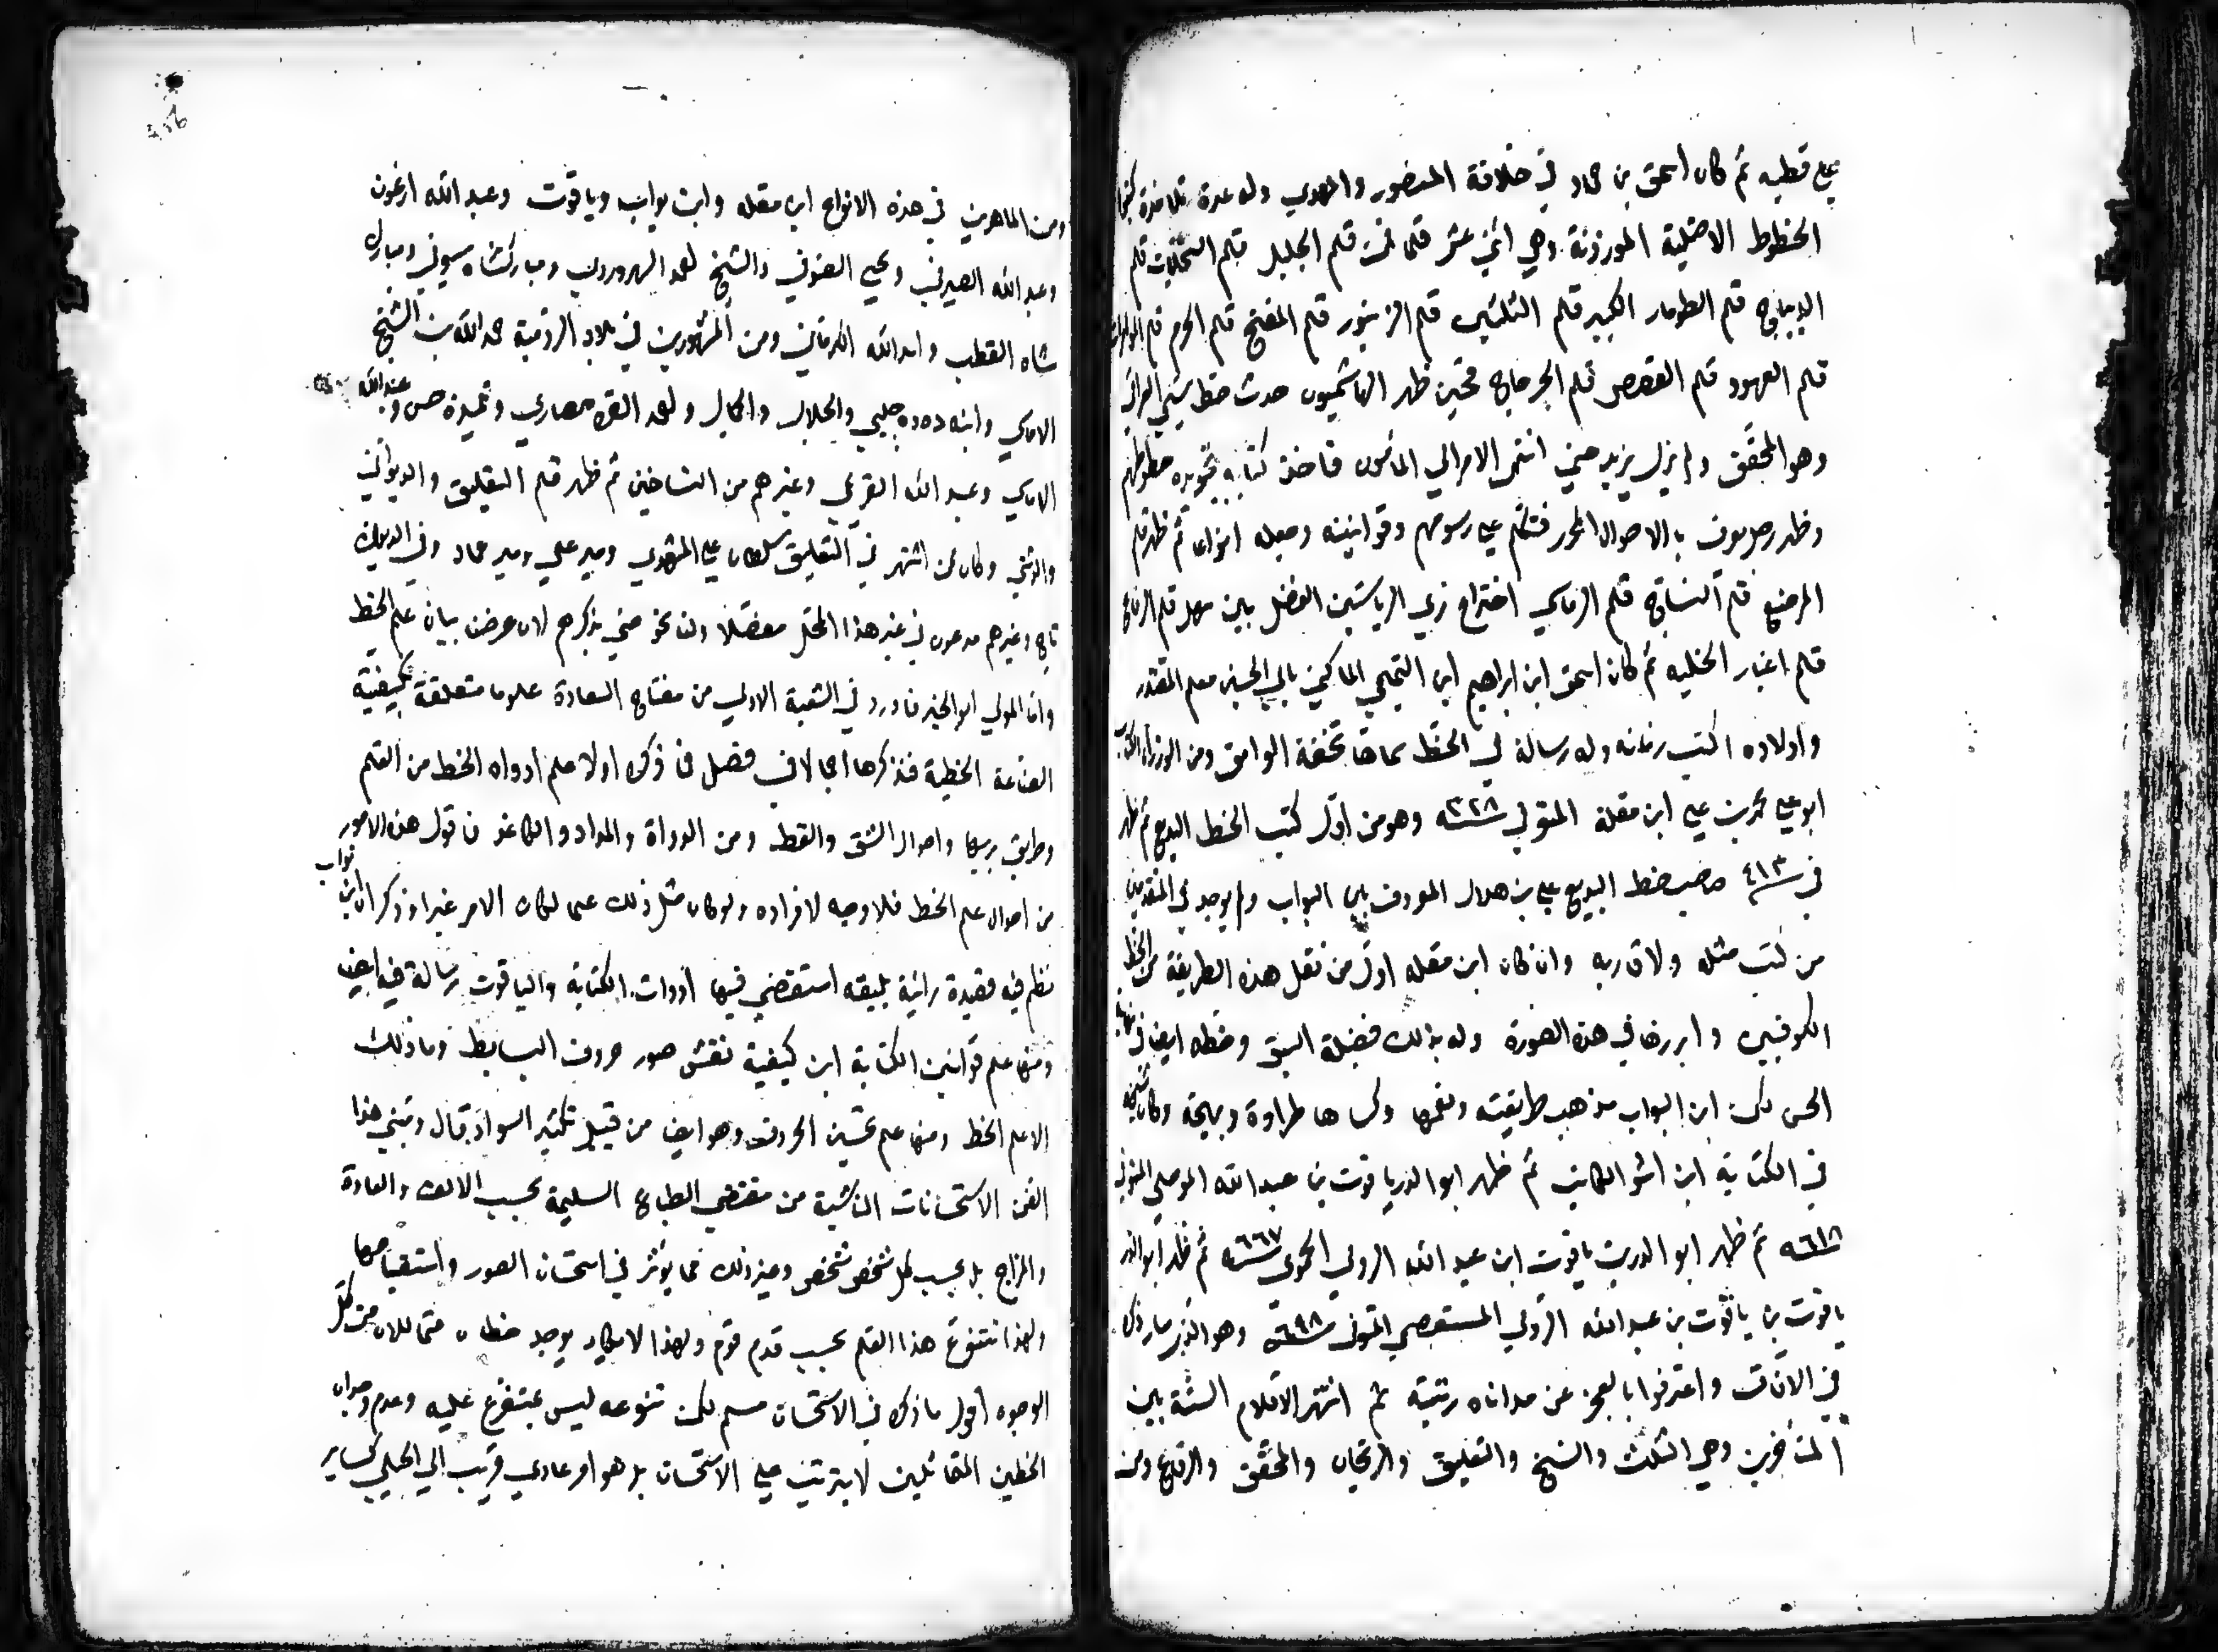 علي قطبه ثم كان اسحق بن حماد في خلافة المنصور والمهدي وله عدة تلامذة كتبوا
الخطوط الاصلية الموزونة وهي اثني عشر قلما قلم الجليل قلم السجلات قلم
الديباج قلم الطومار الكبير قلم الثلثين قلم الزنبور قلم المفتح قلم الحرم قلم المؤامرات
قلم العهود قلم القصص قلم الحرفاج فحين ظهر الهاشميون حدث خط يسمي العراقي
وهو المحقق ولم يزل يزيد حتي انتهي الامر الي المأمون فاخذ كتابه بتجويد خطوطهم
وظهر رجل يعرف بالاحول المحرر فتكلم علي رسومهم وقوانينه وجعله انواعا ثم ظهر قلم
المرصع قلم النساخ قلم الرياسي اختراع ذي الرياستين الفضل بن سهل قلم الرقاع
قلم اغبار الحليه ثم كان اسحق ابن ابراهيم ابن التميمي المكني بابي الحسين معلم المقتدر
واولاده اكتب زمانه وله رسالة في الخط سماها تحفة الوامق ومن الوزراء الكتاب
ابو علي محمد بن علي ابن مقلة المتوفي ٣٢٨ سنه وهو من اول كتب الخط البديع ثم ظهر
في ٤١٣ سنه صاحب خط البديع علي بن هلال المعروف بابن البواب ولم يوجد في المتقدمين
من كتب مثله ولا قاربه وان كان ابن مقله اول من نقل هذه الطريقة من الخط
الكوفيين وابرزها في هذه الصورة وله بذلك فضيلة السبق وخطه ايضا في نهاية
الحسن لكن ابن البواب هذب طريقته ونقحها وكساها طراوة وبهجة وكان شيخه
في الكتابة ابن اسد الكاتب ثم ظهر ابو الدر ياقوت بن عبد الله الموصلي المتوفي
٦١٨ سنه ثم ظهر ابو الدر بن ياقوت ابن عبد الله الرومي الحموي ٦٦٧ سنه ثم ظهر ابو الدر
ياقوت بن ياقوت بن عبد الله الرومي المستعصمي المتوفي ٦٩٨ سنه وهو الذي سار ذكره
في الآفاق واعترفوا بالعجز عن مداناه رتبته ثم اشتهر الاقلام الستة بين
المتأخرين وهي الثلث والنسخ والتعليق والريحان والمحقق والرقاع ومن
ومن الماهرين في هذه الانواع ابن مقله وابن بواب وياقوت وعبد الله ارغون
وعبد الله الصيرفي ويحيي الصوفي والشيخ احمد السهروردي ومباركشاه سيوفي ومبارك
شاه القطب واسد الله الكرماني ومن المشهورين في بلاد الرومية حمد الله بن الشيخ
الاماسي وابنه دده چلبي والجلال والجمال واحمد القره حصاري وتلميذه حسن وعبد الله
الاماسي وعبد الله القريمي وغيرهم من النساخين ثم ظهر قلم التعليق والديواني
والدشتي وكان ممن اشتهر في التعليق سلطان علي المشهدي ومير علي ومير عماد وفي الديوان
تاج وغيرهم مدعون في غير هذا المحل مفصلا ولنا نحو حتي نذكرهم لان غرضنا بيان علم الخط
واما المولي ابو الخير فاورد في الشعبة الاولي من مفتاح السعادة علوما متعلقة بكيفية
الصناعة الخطية فنذكرها اجمالا في فصل فما ذكره اولا علم ادوات الخط من القلم
وطريق بريها واحوال الشق والقط ومن الدواة والمداد والكاغد فاقول هذه الامور
من احوال علم الخط فلا وجه لافراده ولو كان مثل ذلك علما لكان الامر عسرا وذكر ان ابن بواب
نظم فيه قصيدة رائية بليغه استقصي فيها ادوات الكتابة والياقوت رسالة فيه ايضا
ومنها علم قوانين الكتابة اي كيفية نقش صور حروف البسايط وما ذلك
الا علم الخط ومنها علم تحسين الحروف وهو ايضا من قبيل تكثير السواد قال ومبني هذا
الفن الاستحسانات الناشية من مقتضي الطباع السليمة بحسب الالف والعادة
والمزاج بل بحسب كل شخص شخص وغير ذلك مما يؤثر في استحسان الصور واستقباحها
ولهذا يتنوع هذا القلم بحسب قوم قوم ولهذا لا يكاد يوجد خطان متماثلان من كل
الوجوه اقول ما ذكره في الاستحسان مسلم لكن تنوعه ليس بمتفرع عليه وعدم وجدان
الخطين المتماثلين لا يترتب علي الاستحسان بل هو امر عادي قريب الي الجبلي كساير